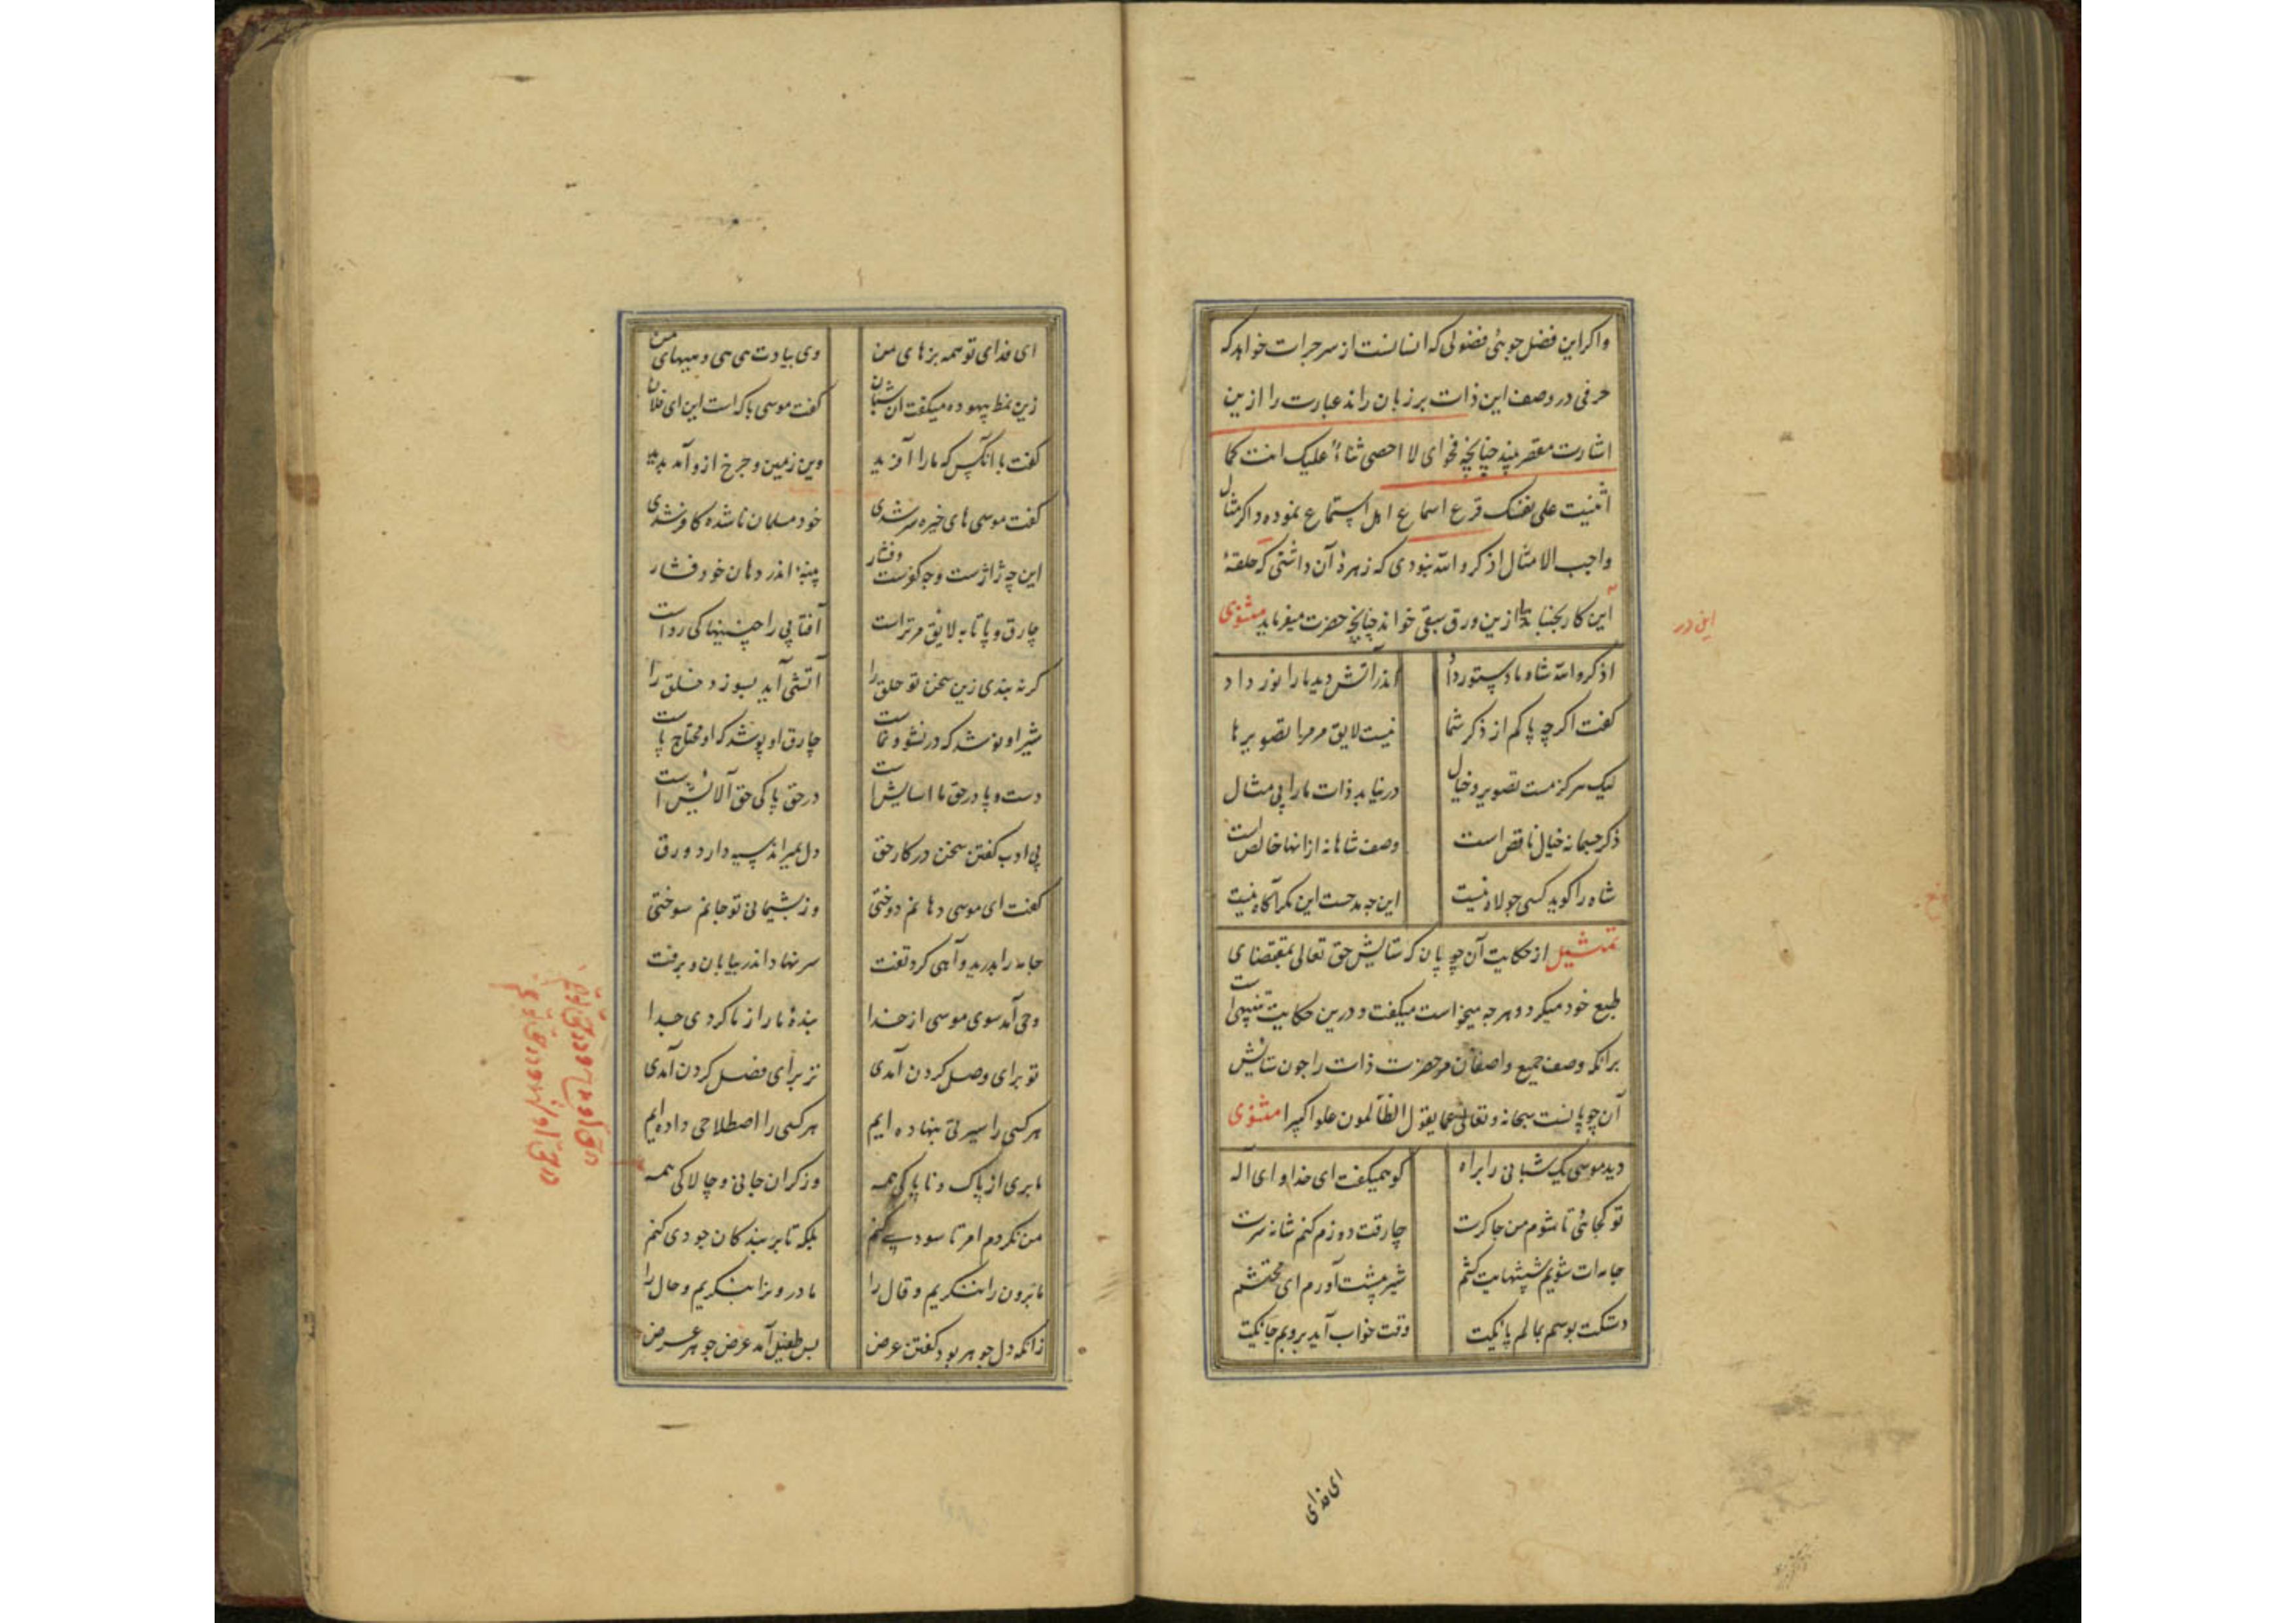 واکر این فضل جوئی فضولی که انسانست از سر جرات خواهد که
حرفی در وصف این ذات بر زبان راند عبارت را ازین
اشارت مقصر بیند چنانچه فحوای لا احصی ثناء علیک انت کما
اثنیت علی نفسک قرع اسماع اهل استماع نموده و اکر مثال
واجب الامتثال اذکروا الله نبودی که زهرهٔ آن داشتی که حلقهٔ
این کار بجنباند یا ازین ورق سبقی خواند چنانچه حضرت میفرماید مثنوی
اذکروا الله شاه ما دستور داد اندر آتش دید ما را نور داد
کفت اکرچه پاکم از ذکر شما نیست لایق مر مرا تصویرها
لیک هرکز مست تصویر و خیال در نیابد ذات ما را بی مثال
ذکر جسمانه خیال ناقص است وصف شاهانه از انها خالص است
شاه را کوید کسی جولاه نیست این چه مدحست این مکر آکاه نیست
تمثیل از حکایت آن چوپان که ستایش حق تعالی بمقتضای
طبع خود میکرد و هرچه میخواست میکفت و درین حکایت تنبیهی است
برانکه وصف جمیع واصفان مر حضرت ذات را چون ستایش
آن چوپانست سبحانه و تعالی عما یقول الظالمون علوا کبیرا مثنوی
دید موسی یک شبانی را براه کو همیکفت ای خدا و ای اله
تو کجائی تا شوم من چاکرت چارقت دوزم کنم شانه سرت
جامه ات شویم شپشهایت کشم شیر پیشت آورم ای محتشم
دستکت بوسم بمالم پایکت وقت خواب آید بروبم جایکت
ای فدای
این در
ای فدای تو همه بزهای من وی بیادت هی هی و هیهای من
زین نمط بیهوده میکفت آن شبان کفت موسی با که است این ای فلان
کفت با آنکس که ما را آفرید وین زمین و چرخ ازو آمد پدید
کفت موسی های خیره سر شدی خود مسلمان ناشده کافر شدی
این چه ژاژست و چه کفرست و فشار پنبهٔ اندر دهان خود فشار
چارق و پاتابه لایق مر تراست آفتابی را چنینها کی رواست
کر نه بندی زین سخن تو حلق را آتشی آید بسوزد خلق را
شیر او نوشد که در نشو و نماست چارق او پوشد که او محتاج پاست
دست و پا در حق ما اسایش است در حق پاکی حق آلایش است
بی ادب کفتن سخن در کار حق دل بمیراند سیه دارد ورق
کفت ای موسی دهانم دوختی وز پشیمانی تو جانم سوختی
جامه را بدرید و آهی کرد تفت سر نهاد اندر بیابان و برفت
وحی آمد سوی موسی از خدا بندهٔ ما را ز ما کردی جدا
تو برای وصل کردن آمدی نز برای فصل کردن آمدی
هر کسی را سیرتی بنهاده ایم هر کسی را اصطلاحی داده ایم
ما بری از پاک و ناپاکی همه وز کران جانی و چالاکی همه
من نکردم امر تا سودی کنم بلکه تا بر بندکان جودی کنم
ما برون را ننکریم و قال را ما درون را بنکریم و حال را
زانکه دل جوهر بود کفتن عرض بس طفیل آمد عرض جوهر غرض